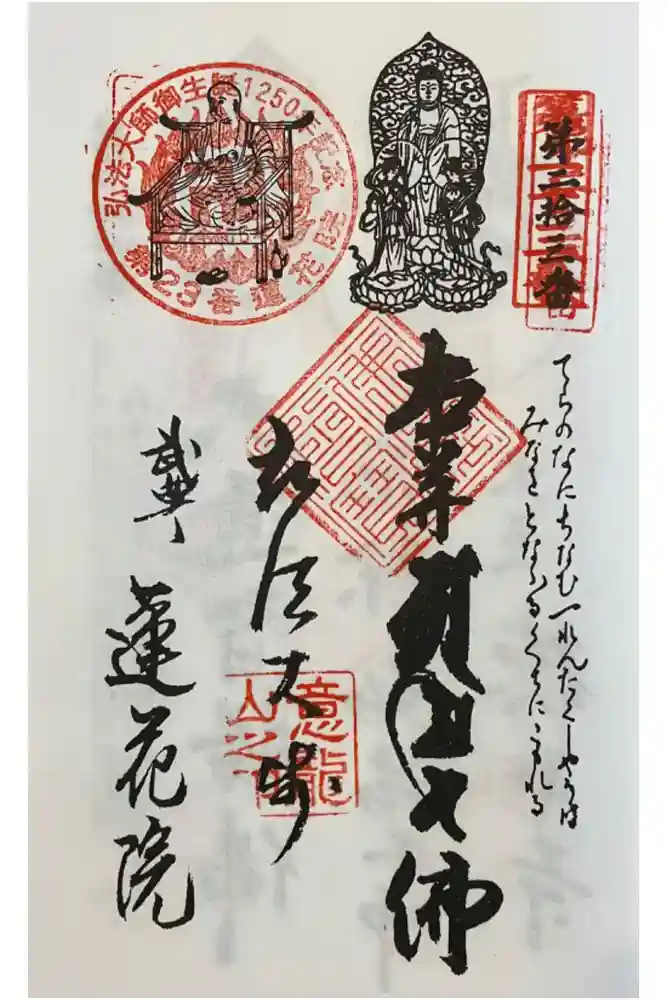 第二拾三番
弘法大師御生誕1250年記念
第23番蓮花院
てらのなにちなむ一れんたくしやうは
みなをとなふるくちにこもれる
本尊
佛
弘法大師
意龍山之印
武州
蓮花院